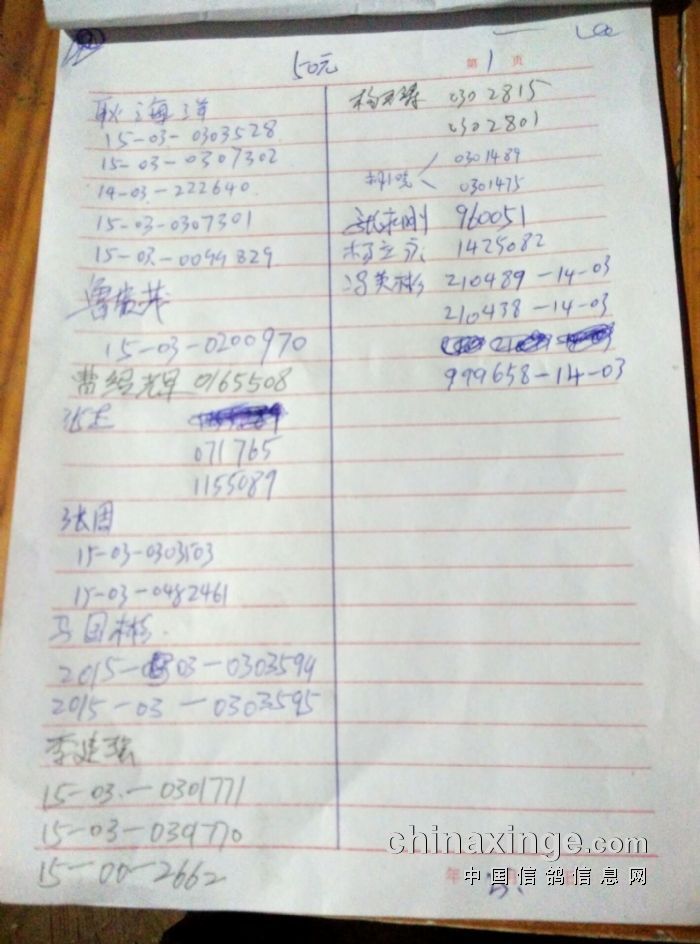 50元
第1页
耿海洋
15-03-0303528
15-03-0307302
14-03-222640
15-03-0307301
15-03-0099829
15-03-0200970
曹绍辉 0165508
张
071765
1155089
张周
15-03-0303503
15-03-0482461
马团彬
2015-03-0303594
2015-03-0303595
李建
15-03-0301771
15-03-039770
15-00-2662
杨 0302815
0302801
0301489
0301475
960051
1425082
冯英彬 210489-14-03
210438-14-03
999658-14-03
年
chinaxinge.com
中国信鸽信息网